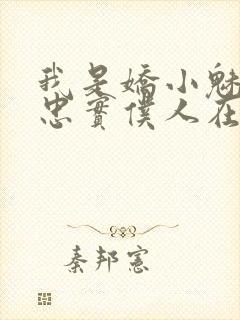 我是嬌小魅
忠實僕人在
秦邦憲